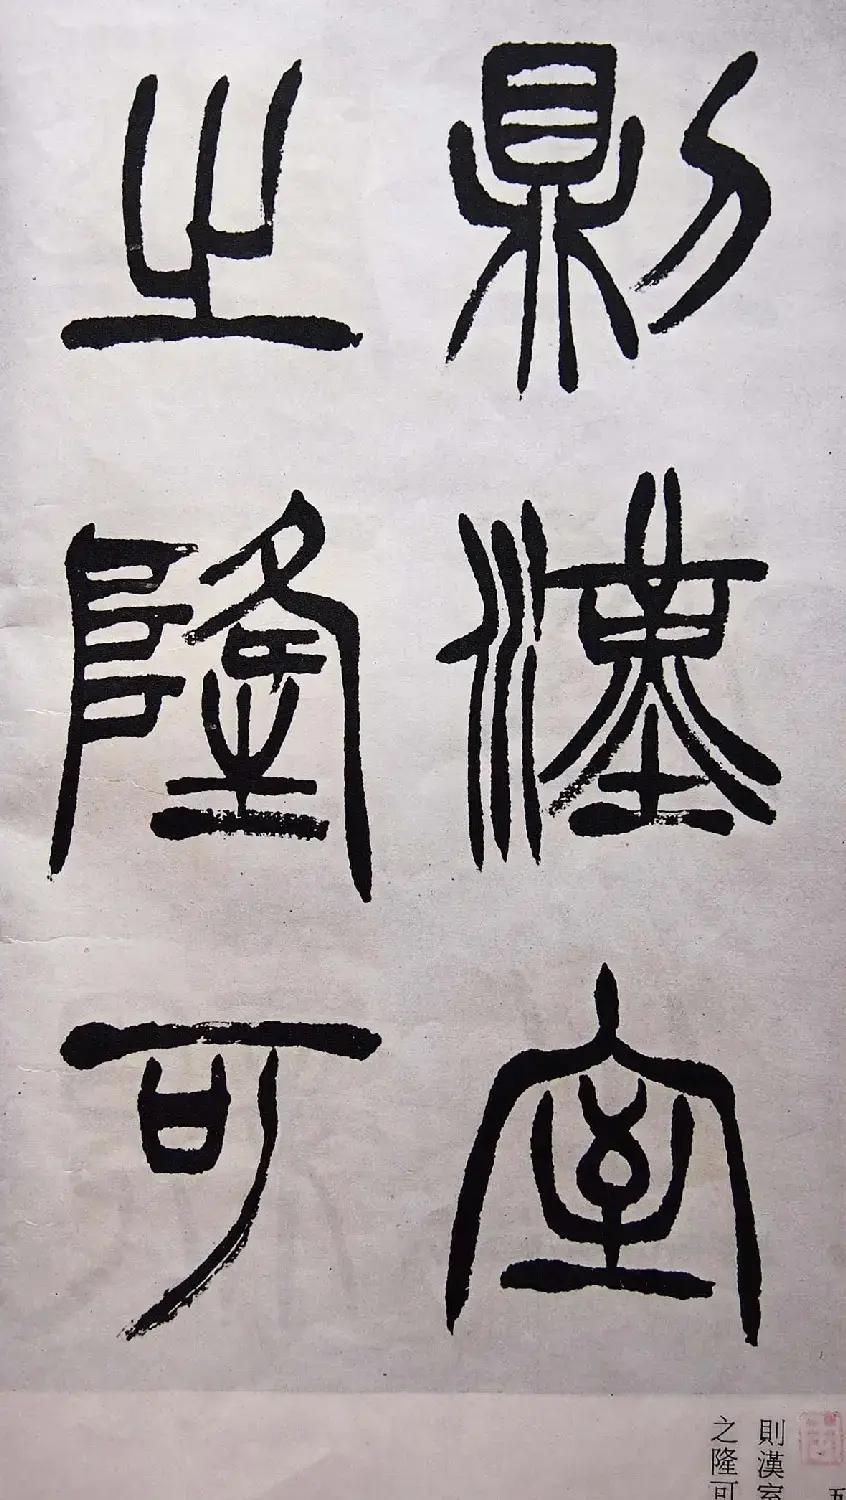 則漢室
之隆可
五
則漢室
之隆可